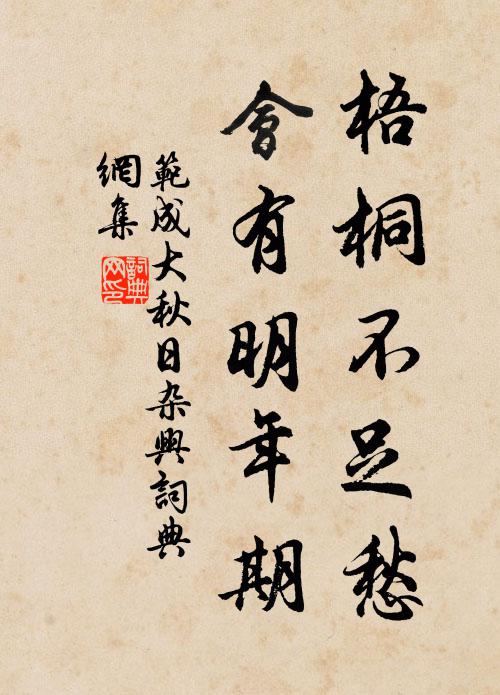 梧桐不足愁
會有明年期
範成大秋日杂興詞典
網集
詞典
网印